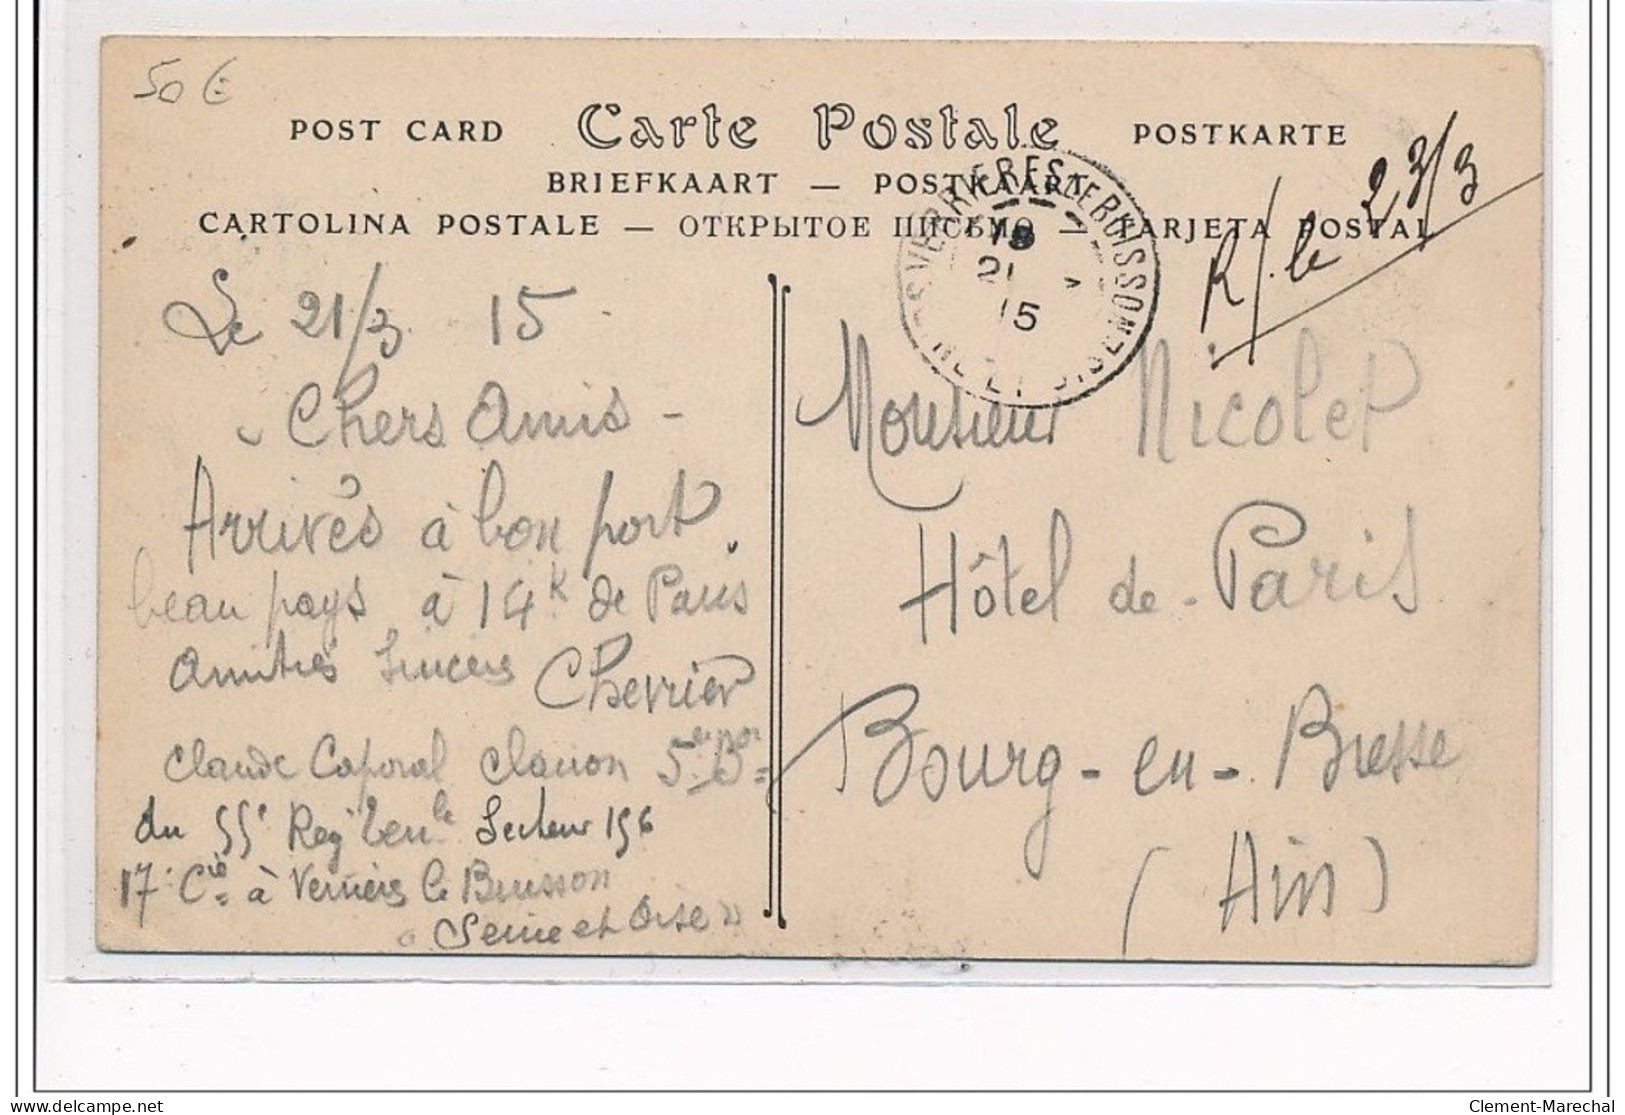 50 €
POST CARD Carte Postale POSTKARTE
BRIEFKAART — POSTKAART
CARTOLINA POSTALE — ОТКРЫТОЕ ПИСЬМО — TARJETA POSTAL
R/. le 23/3
VERRIERES-LE-BUISSON
21
15
Le 21/3 15
Chers Amis -
Arrivés à bon port
beau pays à 14k de Paris
Amitiés Sincères Chevrier
Claude Caporal Clairon 5e Bon
du 55e Reg Terrle Secteur 156
17 Cie à Verrières le Buisson
Seine et Oise
Monsieur Nicolet
Hôtel de Paris
Bourg-en-Bresse
(Ain)
Clement-Marechal